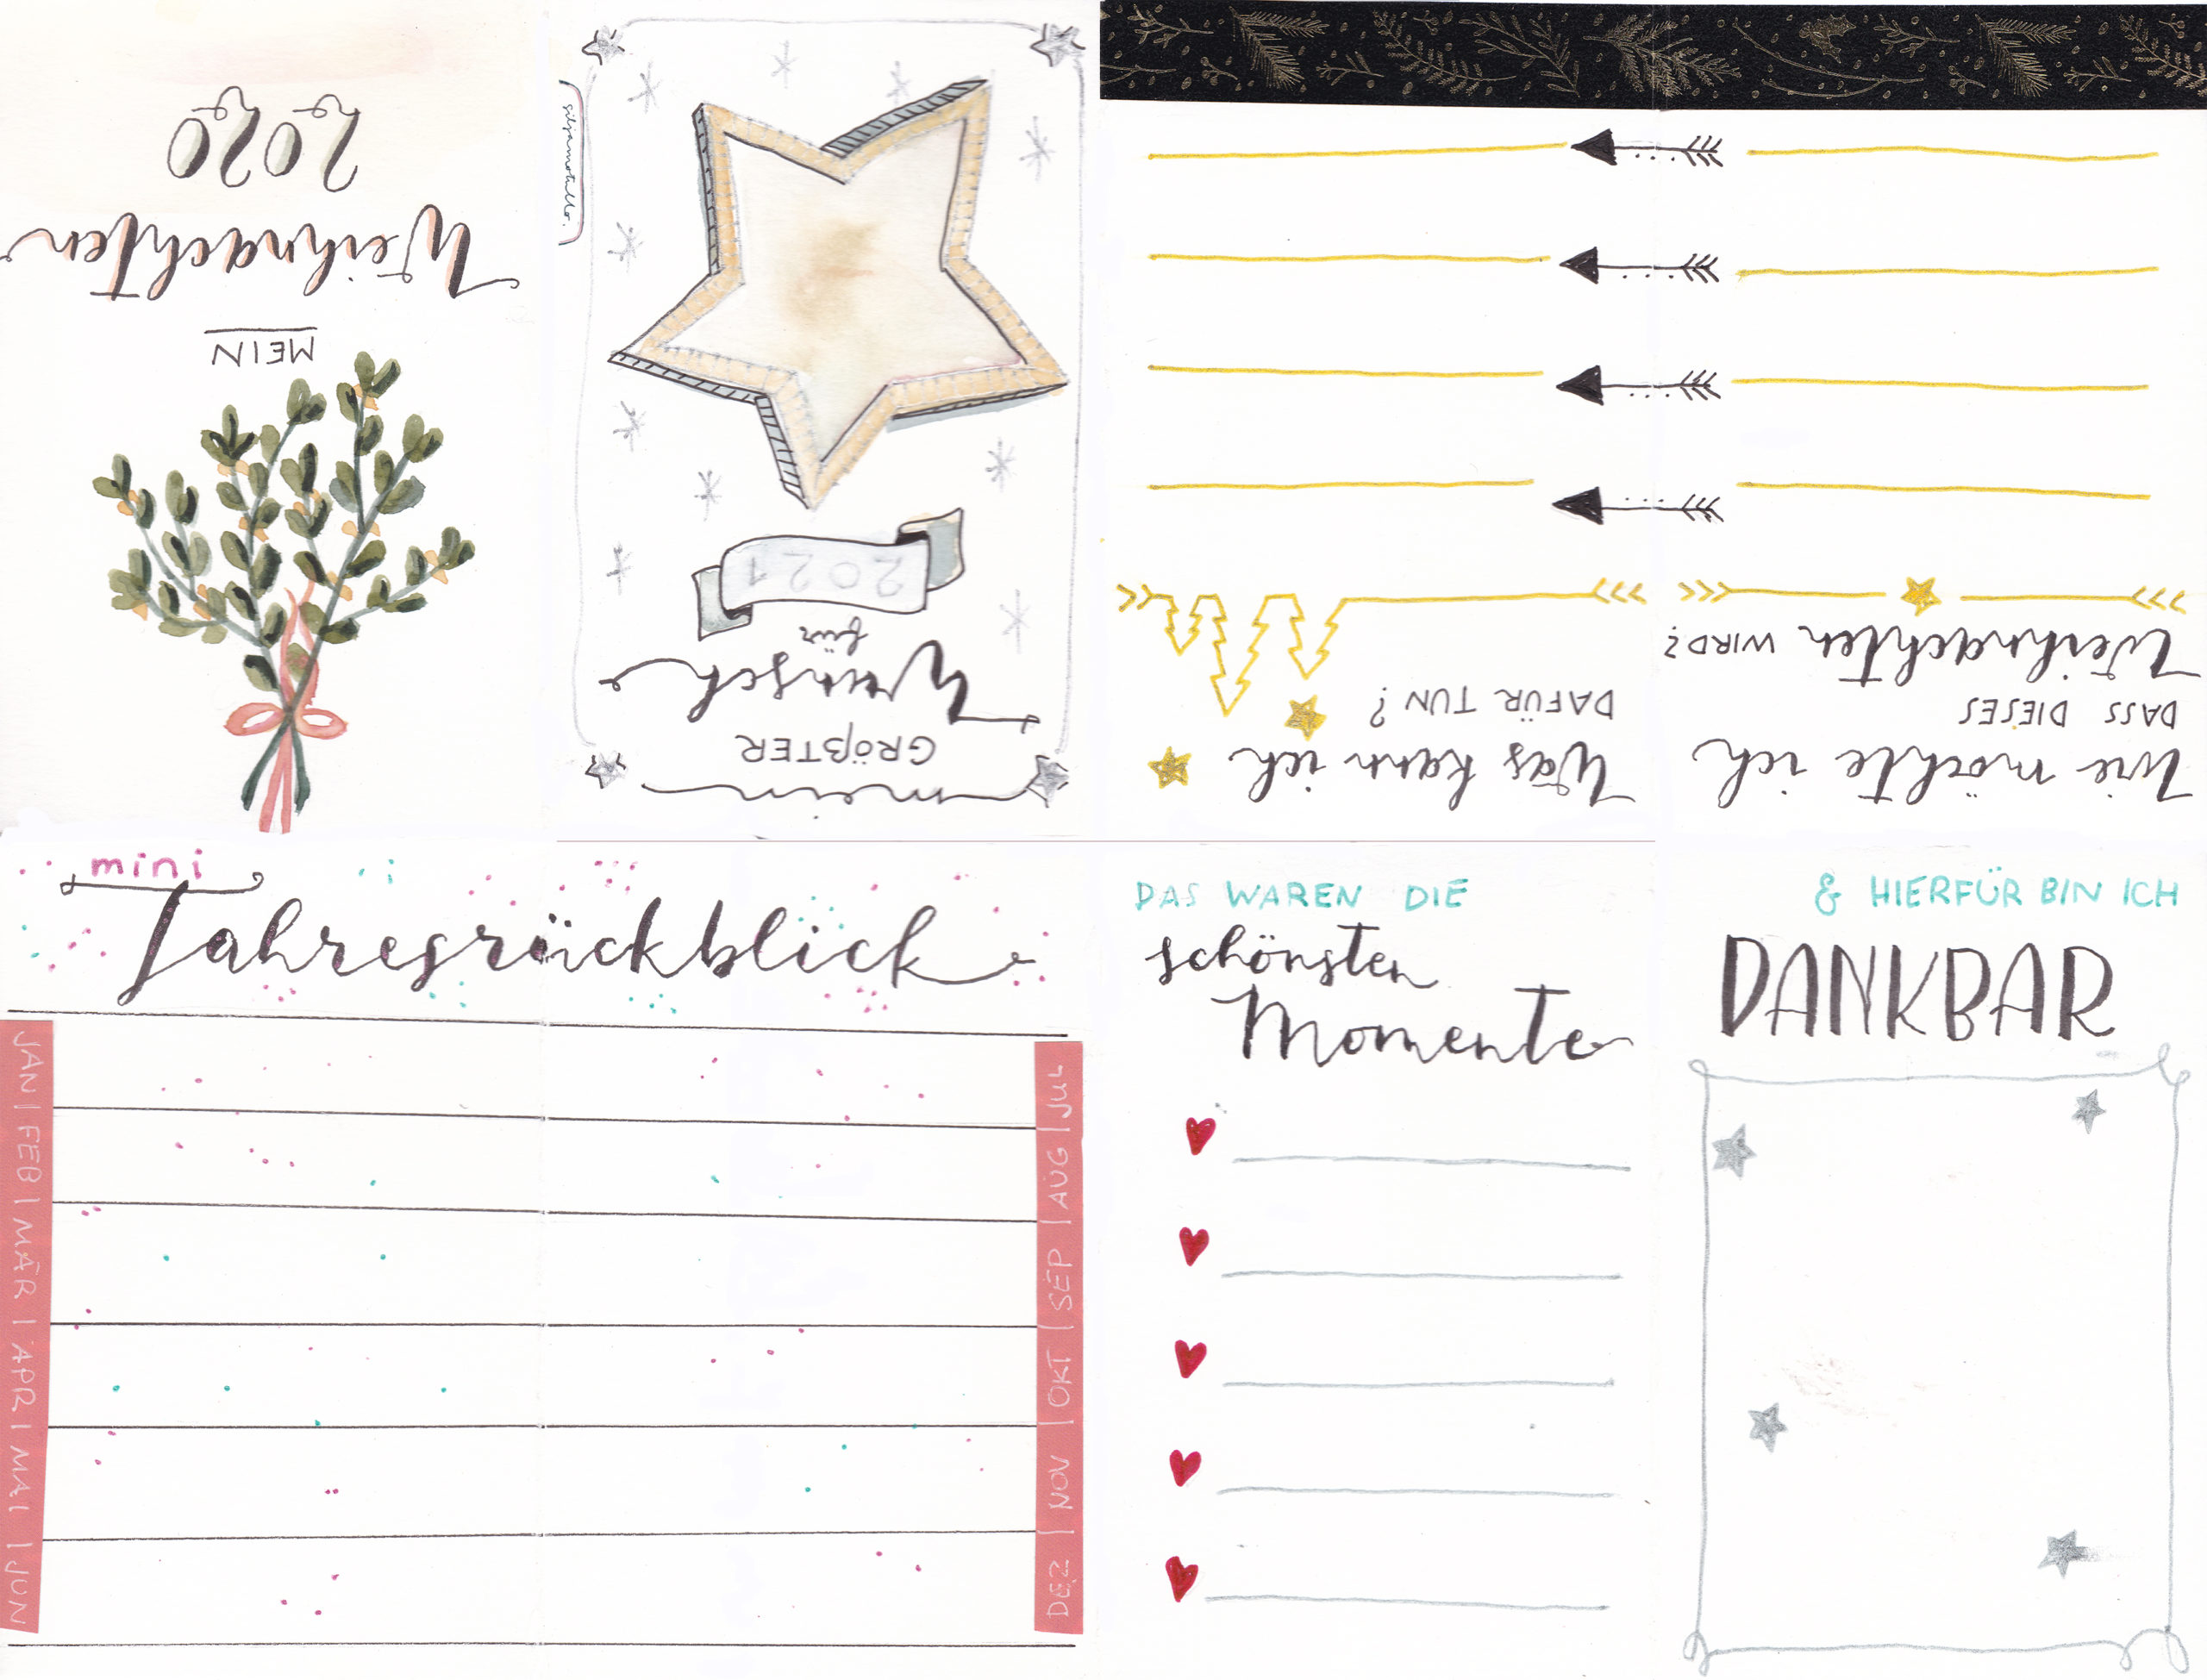 MEIN
Weihnachten
2020
Wie möchte ich
DASS DIESES
Weihnachten WIRD?
Was kann ich
DAFÜR TUN?
mein
GRÖßTER
Wunsch
für
2021
mini
Jahresrückblick
JAN | FEB | MÄR | APR | MAI | JUN
DEZ | NOV | OKT | SEP | AUG | JUL
DAS WAREN DIE
schönsten
Momente
& HIERFÜR BIN ICH
DANKBAR